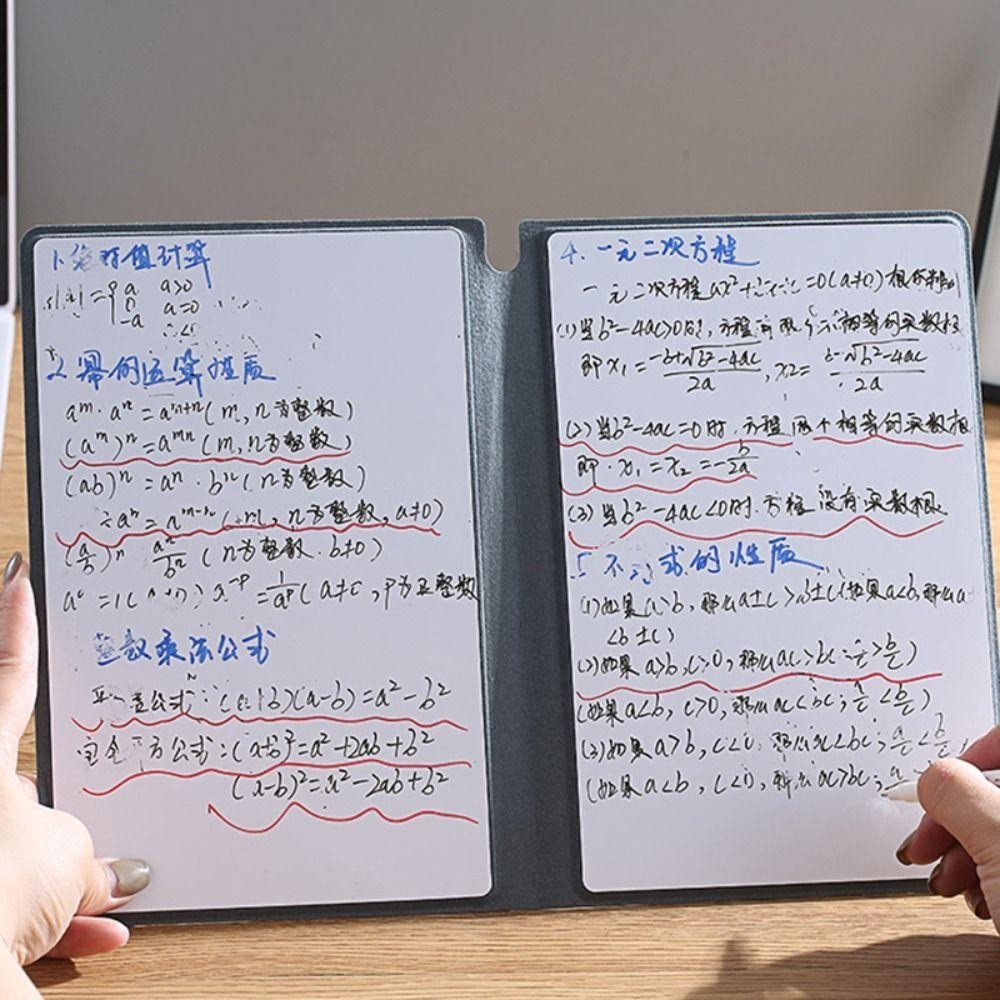 1.绝对值计算
a a>0
0 a=0
-a <0
2.幂的运算性质
aᵐ·aⁿ=aᵐ⁺ⁿ(m,n为整数)
(aᵐ)ⁿ=aᵐⁿ(m,n为整数)
(ab)ⁿ=aⁿ·bⁿ(n为整数)
÷aⁿ=aᵐ⁻ⁿ(m,n为整数,a≠0)
(a/b)ⁿ aⁿ/bⁿ(n为整数·b≠0)
a⁻ᵖ=1/aᵖ(a≠ ,p为正整数
整数乘法公式
平 差公式:( b)(a-b)=a²-b²
完全平方公式:(a+b)²=a²+2ab+b²
(a-b)²=a²-2ab+b²
4.一元二次方程
一元二次方程ax²+ =0(a≠0)根的
(1)当b²-4ac>0时,方程有两个不相等的实数根
即x₁=-b+√b²-4ac/2a,x₂= b-√b²-4ac/2a
(2)当b²-4ac=0时.方程两个相等的实数根
即·x₁=x₂=-b/2a
(3)当b²-4ac<0时.方程没有实数根
5不 式的性质
(1)如果a>b,那么a±c>b±c(如果a<b,那么a
<b±c)
(2)如果a>b,c>0,那么ac>bc; >b/c)
(如果a<b,c>0,那么ac<bc;a/c<b/c)
(3)如果a>b,c<0.那么ac<bc;a/c<b/c,
(如果a<b,c<0,那么ac>bc;a